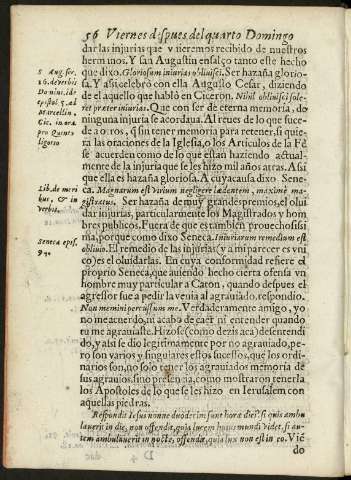 56 Viernes despues del quarto Domingo
dar las injurias que vuieremos recibido de nuestros
hermanos. Y san Augustin ensalço tanto este hecho
que dixo. Gloriosum iniurias obliuisci. Ser hazaña glorio-
sa. Y assi celebro con ella Augusto Cesar, diziendo
de el aquello que hablò en Ciceron. Nihil obliuisci sole-
ret præter iniurias. Que con ser de eterna memoria, de
ninguna injuria se acordaua. Al reues de lo que suce-
de a otros, q̃ sin tener memoria para retener, si quie-
ra las oraciones de la Iglesia, o los Articulos de la Fè
se acuerden como de lo que estan haziendo actual-
mente de la injuria que se les hizo mil años atras. Assi
que ella es hazaña gloriosa. A cuya causa dixo Sene-
ca. Magnarum est virium negligere lædentem, maximè ma-
gistratus. Ser hazaña de muy grandes premios, el olui
dar injurias, particularmente los Magistrados y hom
bres publicos. Fuera de que es tambien prouechosissi
ma, porque como dixo Seneca. Iniuriarum remedium est
obliuio. El remedio de las injurias (y a mi parecer es vni
co) es el oluidarlas. En cuya conformidad refiere el
proprio Seneca, que auiendo hecho cierta ofensa vn
hombre muy particular a Caton, quando despues el
agressor fue a pedir la venia al agrauiado, respondio.
Non memini percussum me. Verdaderamente amigo, yo
no me acuerdo, ni acabo de caer ni entender quando
tu me agrauiaste. Hizose (como dezis aca) desentendi
do, y assi se dio legitimamente por no agrauiado, pe-
ro son varios y singulares estos sucessos, que los ordi-
narios son, no solo tener los agrauiados memoria de
sus agrauios, sino presencia, como mostraron tenerla
los Apostoles de lo que se les hizo en Ierusalem con
aquellas piedras.
Respondit Iesus nonne duodecim sunt horæ diei? si quis ambu
lauerit in die, non offendit, quia lucem huius mundi videt, si au-
tem ambulauerit in nocte, offendit, quia lux non est in eo. Viẽ
do
S. Aug. ser.
16. de verbis
Domini, ide
epist. 5. ad
Marcellin.
Cic. in ora
pro Quinto
ligorio
Lib. de mori
bus, & in
verbis.
Seneca epis.
94.